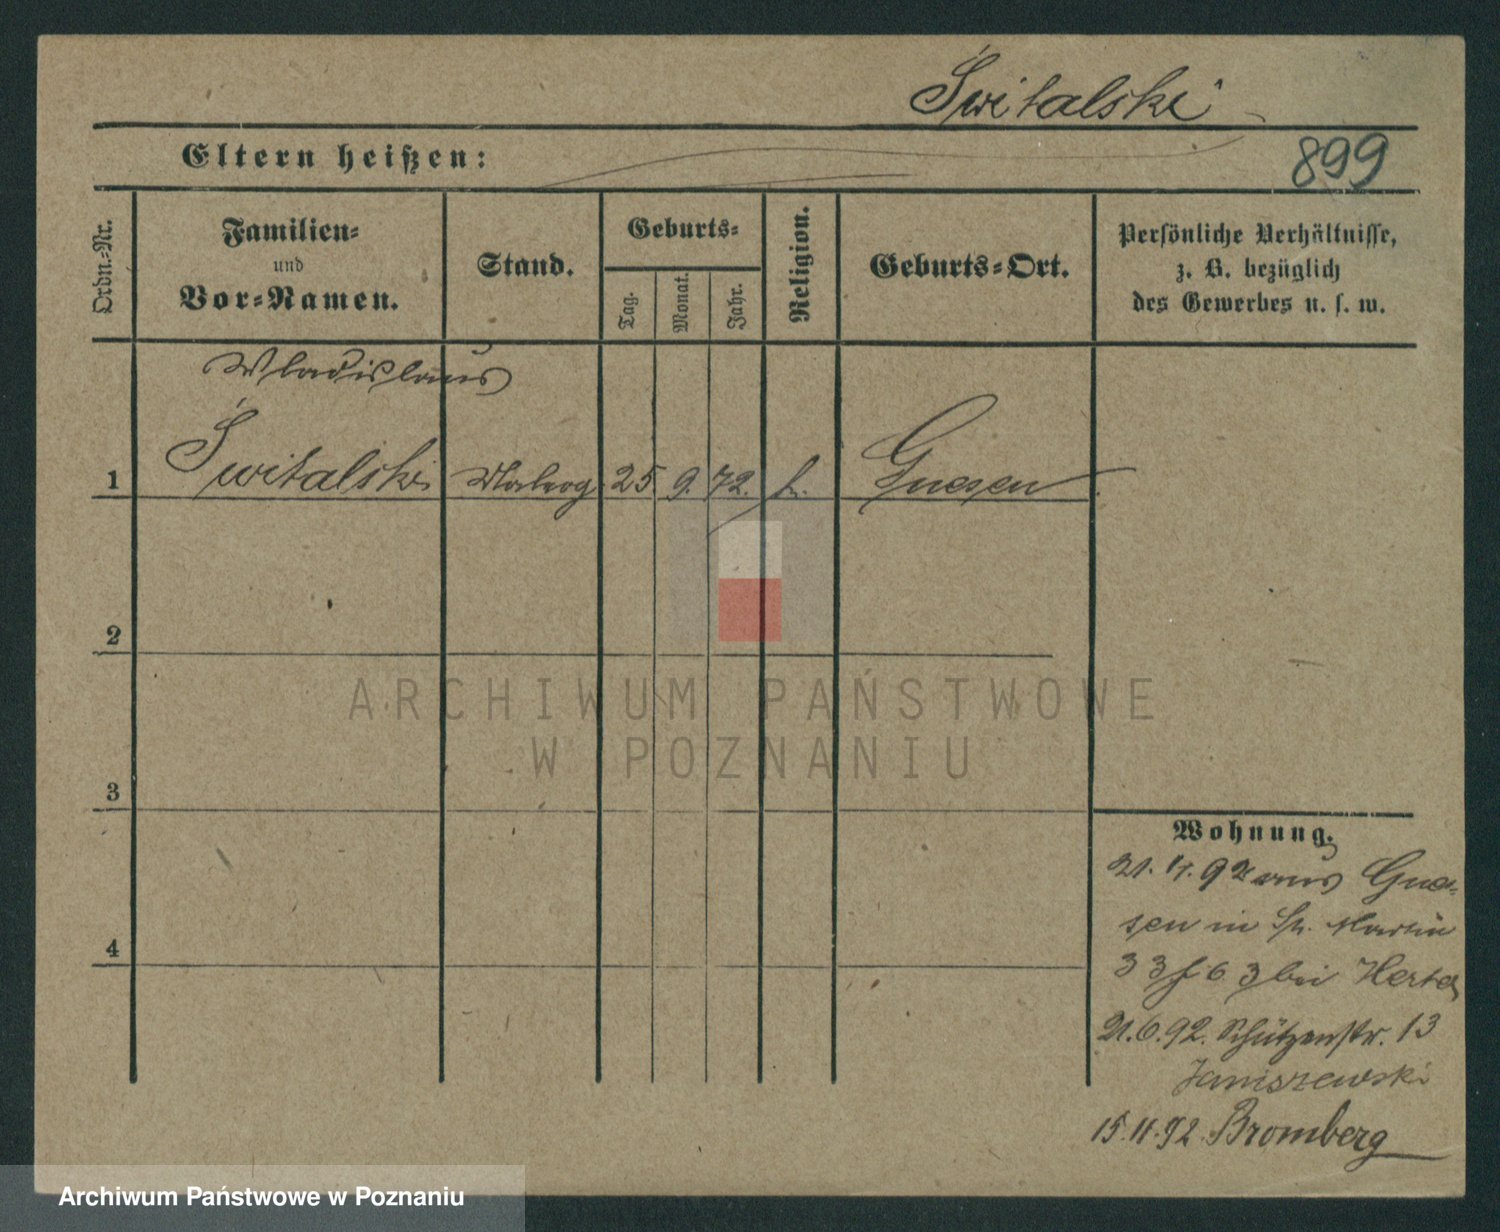 Świtalski
Eltern heißen:
899
Ordn.-Nr.
Familien-
und
Vor-Namen.
Stand.
Geburts-
Tag.
Monat.
Jahr.
Religion.
Geburts-Ort.
Persönliche Verhältnisse,
z. B. bezüglich
des Gewerbes u. s. w.
Wladislaus
1 Świtalski 25 9. 72. k. Gnesen
2
3
4
ARCHIWUM PAŃSTWOWE
W POZNANIU
Wohnung.
21. 4. 92 aus Gne-
sen in St. Martin
33 bei
21.6.92. Schützenstr. 13
Janiszewski
15.11.92. Bromberg
Archiwum Państwowe w Poznaniu